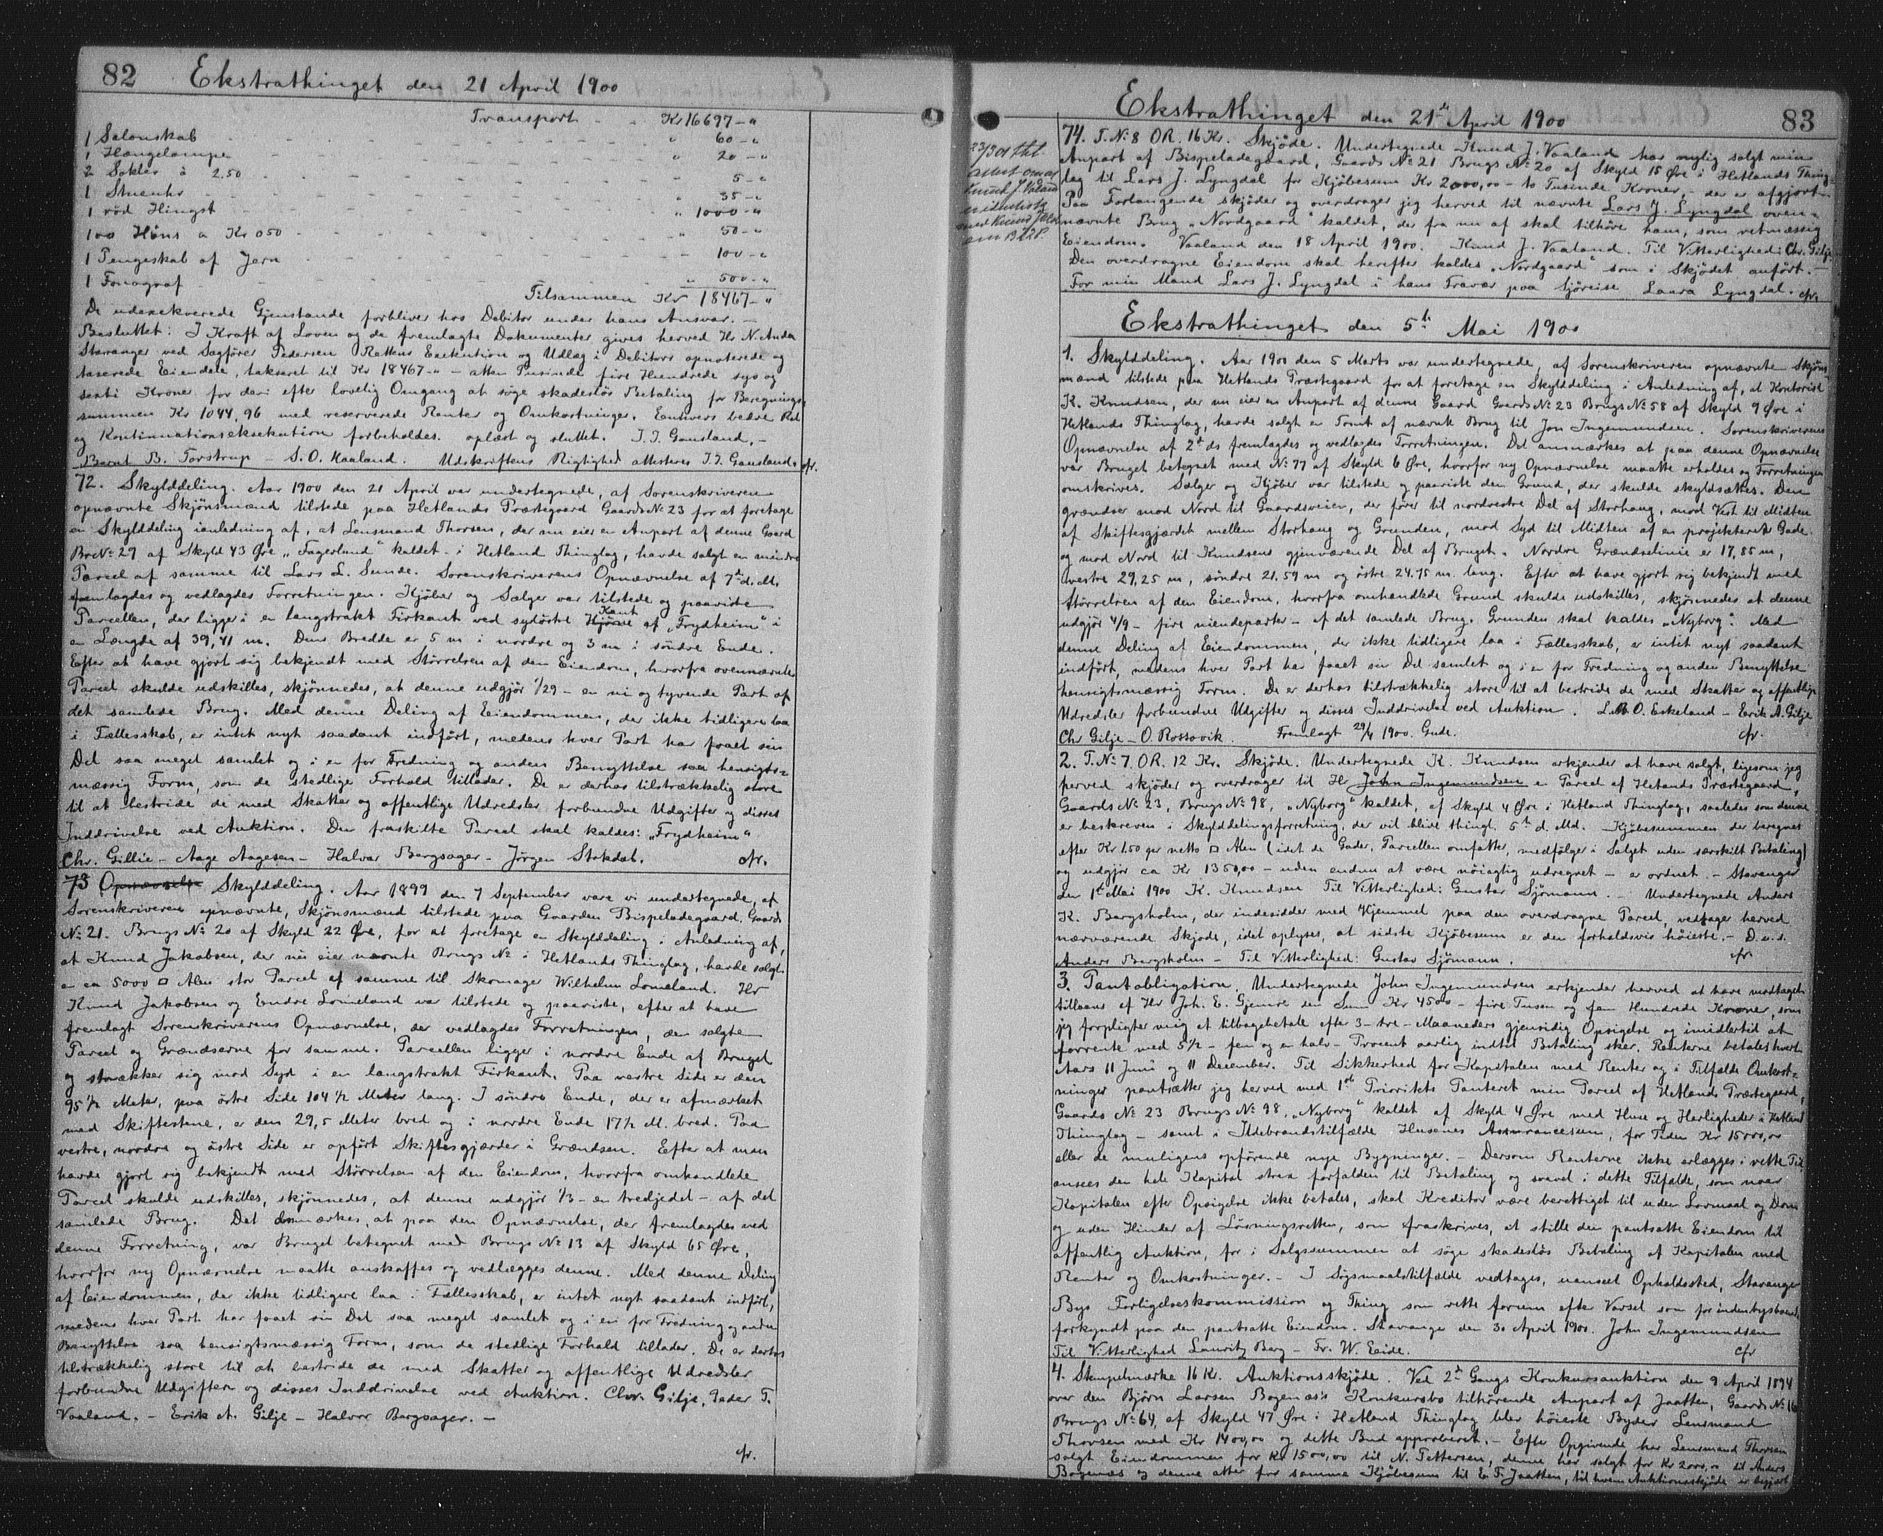 82 Ekstrathinget den 21 April 1900
Transport - - Kr 16697 - "
1 Salonskab - - - " 60 - "
1 Hængelampe - - - " 20 - "
2 Sokler à 2.50 - - - 5 - "
1 Stueuhr - - - " 35 - "
1 rød Hingst - - - " 1000 - "
100 Høns a Kr 050 - - - " 50 - "
1 Pengeskab af Jern - - - 100 - "
1 Fonograf - - - " 500 - "
Tilsammen Kr 18467 - "
De udexekverede Gjenstande forbliver hos Debitor under hans Ansvar. -
Besluttet: I Kraft af Loven og de fremlagte Dokumenter gives herved Hr N. Anda
Stavanger ved Sagfører Pedersen Rettens Exekution og Udlæg i Debitors opnoterede og
taxerede Eiendele, takseret til Kr 18467 - " - atten Tusinde fire Hundrede syv og
sexti Kroner for deri efter lovelig Omgang at søge skadesløs Betaling for Beregnings-
summen Kr 1044,96 med reserverede Renter og Omkostninger. Enhvers bedre Ret
og Kontinuationseksekution forbeholdes. oplæst og sluttet. T. T. Gausland. -
Bernt B. Torstrup - S. O. Haaland. Udskriftens Rigtighed attesteres T. T. Gausland. cfr.
72. Skylddeling. Aar 1900 den 21 April var undertegnede, af Sorenskriveren
opnævnte Skjønsmænd tilstede paa Hetlands Præstegaard Gaards No 23 for at foretage
en Skylddeling i anledning af, at Lensmand Thorsen, der nu eier en Anpart af denne Gaard
Br No 29 af Skyld 43 Øre "Fagerlund" kaldet - i Hetland Thinglag, havde solgt en mindre
Parcel af samme til Lars L. Sunde. Sorenskriverens Opnævnelse af 7de d. M.
fremlagdes og vedlagdes Forretningen. Kjøber og Sælger var tilstede og paaviste
Parcellen, der ligger i en langstrakt Firkant ved sydøstre Hjørne Kant af "Frydheim" i
en Længde af 39,41 m. Dens Bredde er 5 m i nordre og 3 m i søndre Ende.
Efter at have gjort sig bekjendt med Størrelsen af den Eiendom, hvorfra ovennævnte
Parcel skulde udskilles, skjønnedes, at denne udgjør 1/29 - en ni og tyvende Part af
det samlede Brug. Med denne Deling af Eiendommen, der ikke tidligere laa
i Fællesskab, er intet nyt saadant indført, medens hver Part har faaet sin
Del saa meget samlet og i en for Fredning og anden Benyttelse saa hensigts=
mæssig Form, som de stedlige Forhold tillader. De er derhos tilstrækkelig store
til at bestride de med Skatter og offentlige Udredsler forbundne Udgifter og disses
Inddrivelse ved Auktion. Den fraskilte Parcel skal kaldes: "Frydheim"
Chr. Gillie - Aage Aagesen - Halvar Bergsager - Jørgen Stokdal. cfr.
73 Opnævnelse Skylddeling. Aar 1899 den 7 September vare vi undertegnede, af
Sorenskriveren opnævnte, Skjønsmænd tilstede paa Gaarden Bispeladegaard, Gaards
No 21. Brugs No 20 af Skyld 22 Øre, for at foretage en Skylddeling i Anledning af,
at Knud Jakobsen, der nu eier nævnte Brugs No i Hetlands Thinglag, havde solgt
en ca 5000 □ Alen stor Parcel af samme til Skomager Wilhelm Lomeland. Hr
Knud Jakobsen og Endre Lomeland var tilstede og paaviste, efter at have
fremlagt Sorenskriverens Opnævnelse, der vedlagdes Forretningen, den solgte
Parcel og Grændserne for samme. Parcellen ligger i nordre Ende af Bruget
og strækker sig mod Syd i en langstrakt Firkant. Paa vestre Side er den
95 1/2 Meter, paa østre Side 104 1/2 Meter lang. I søndre Ende, der er afmærket
med Skiftestene, er den 29,5 Meter bred og i nordre Ende 17 1/2 M. bred. Paa
vestre, nordre og østre Side er opført Skiftesgjærder i Grændsen. Efter at man
havde gjort sig bekjendt med Størrelsen af den Eiendom, hvorfra omhandlede
Parcel skulde udskilles, skjønnedes, at denne udgjør 1/3 - en tredjedel - af det
samlede Brug. Det anmærkes, at paa den Opnævnelse, der fremlagdes ved
denne Forretning, var Bruget betegnet med Brugs No 13 af Skyld 65 Øre,
hvorfor ny Opnævnelse maatte anskaffes og vedlægges denne. Med denne Deling
af Eiendommen, der ikke tidligere laa i Fællesskab, er intet nyt saadant indført,
medens hver Part har faaet sin Del saa meget samlet og i en for Fredning og anden
Benyttelse saa hensigtsmæssig Form, som de stedlige Forhold tillader. De er derhos
tilstrækkelig store til at bestride de med Skatter og offentlige Udredsler
forbundne Udgifter og disses Inddrivelse ved Auktion. Chr. Gilje, Peder T.
Vaaland. - Erik A. Gilje - Halvor Bergsager. -
cfr.
Ekstrathinget den 21de April 1900 83
Knud J. Vaaland
er identisk
74. T. No 8 OR. 16 Kr. Skjøde. Undertegnede Knud J. Vaaland har nylig solgt min
Anpart af Bispeladegaard, Gaards No 21 Brugs No 20 af Skyld 15 Øre i Hetlands Thing=
lag til Lars J. Lyngdal for Kjøbesum Kr 2000,00 - to Tusinde Kroner, der er afgjort.
Paa Forlangende skjøder og overdrager jeg herved til nævnte Lars J. Lyngdal oven=
nævnte Brug "Nordgaard" kaldet, der fra nu af skal tilhøre ham, som retmæssig
Eiendom. Vaaland den 18 April 1900. Knud J. Vaaland. Til Vitterlighed: Chr. Gilje
Den overdragne Eiendom skal herefter kaldes "Nordgaard" som i Skjødet anført. -
For min Mand Lars J. Lyngdal i hans Fravær paa Sjøreise Laura Lyngdal. cfr.
Ekstrathinget den 5te Mai 1900
1. Skylddeling. Aar 1900 den 5 Marts var undertegnede, af Sorenskriveren opnævnte Skjøns=
mænd tilstede paa Hetlands Præstegaard for at foretage en Skylddeling i Anledning af, at Kontorist
K. Knudsen, der nu eier en Anpart af denne Gaard Gaards No 23 Brugs No 58 af Skyld 9 Øre i
Hetlands Thinglag, havde solgt en Tomt af nævnte Brug til Jon Ingemundsen. Sorenskriverens
Opnævnelse af 2de ds fremlagdes og vedlagdes Forretningen. Det anmærkes at paa denne Opnævnelse
var Bruget betegnet med No 77 af Skyld 6 Øre, hvorfor ny Opnævnelse maatte erholdes og Forretningen
omskrives. Sælger og Kjøber var tilstede og paaviste den Grund, der skulde skyldsættes. Den
grændser mod Nord til Gaardsveien, der fører til nordvestre Del af Storhaug, mod Vest til Midten
af Skiftesgjærdet mellem Storhaug og Grunden, mod Syd til Midten af en projekteret Gade
og mod Nord til Knudsens gjenværende Del af Bruget. Nordre Grændselinie er 17,85 m,
vestre 29,25 m, søndre 21.59 m og østre 24.75 m. lang. Efter at have gjort sig bekjendt med
Størrelsen af den Eiendom, hvorfra omhandlede Grund skulde udskilles, skjønnedes at denne
udgjør 4/9 - fire niendeparter - af det samlede Brug. Grunden skal kaldes "Nyborg". Med
denne Deling af Eiendommen, der ikke tidligere laa i Fællesskab, er intet nyt saadant
indført, medens hver Part har faaet sin Del samlet og i en for Fredning og anden Benyttelse
hensigtsmæssig Form. De er derhos tilstrækkelig store til at bestride de med Skatter og offentlige
Udredsler forbundne Udgifter og disses Inddrivelse ved Auktion. L. M. O. Eskeland - Erik A. Gilje
Chr Gilje - O. Rossavik. Fremlagt 29/4 1900. Gude. cfr.
2. T. No 7. OR. 12 Kr. Skjøde. Undertegnede K. Knudsen erkjender at have solgt, ligesom jeg
herved skjøder og overdrager til Hr John Ingemundsen en Parcel af Hetlands Præstegaard,
Gaards No 23, Brugs No 98, "Nyborg" kaldet, af Skyld 4 Øre i Hetland Thinglag, saaledes som denne
er beskreven i Skylddelingsforretning, der vil blive thingl. 5te d. Md. Kjøbesummen der beregnet
efter Kr 1.50 per netto □ Alen (idet de Gader, Parcellen omfatter, medfølger i Salget uden særskilt Betaling)
og udgjør ca Kr 1350,00 - uden endnu at være nøiagtig udregnet - er ordnet. - Stavanger
den 1ste Mai 1900 K. Knudsen Til Vitterlighed: Gustav Sjömann. - Undertegnede Anders
K. Bergsholm, der indesidder med Hjemmel paa den overdragne Parcel, vedtager herved
nærværende Skjøde, idet oplyses, at sidste Kjøbesum er den forholdsvis høieste. - D. u. s.
Anders Bergsholm - Til Vitterlighed: Gustav Sjömann. cfr.
3. Pantobligation. Undertegnede John Ingemundsen erkjender herved at have modtaget
tillaans af Hr Joh. E. Gjemre den Sum Kr 4500 - fire Tusen og fem Hundrede Kroner, som
jeg forpligter mig at tilbagebetale efter 3 - tre - Maaneders gjensidig Opsigelse og imidlertid at
forrente med 5 1/2 - fem og en halv - Procent aarlig indtil Betaling sker. Renterne betales hvert
Aars 11 Juni og 11 December. Til Sikkerhed for Kapitalen med Renter og i Tilfælde Omkost=
ninger pantsætter jeg herved med 1ste Prioritets Panteret min Parcel af Hetlands Præstegaard,
Gaards No 23 Brugs No 98, "Nyborg" kaldet af Skyld 4 Øre med Huse og Herligheder i Hetland
Thinglag - samt i Ildebrandstilfælde Husenes Assurancesum, for Tiden Kr 15000,00
eller de muligens opførende nye Bygninger. - Dersom Renterne ikke erlægges i rette Tid
ansees den hele Kapital strax forfalden til Betaling og saavel i dette Tilfælde, som naar
Kapitalen efter Opsigelse ikke betales, skal Kreditor være berettiget til uden Lovmaal og Dom
og uden Hinder af Løsningsretten, som fraskrives, at stille den pantsatte Eiendom til
offentlig Auktion, for i Salgssummen at søge skadesløs Betaling af Kapitalen med
Renter og Omkostninger. - I Søgsmaalstilfælde vedtages, uanseet Opholdssted, Stavanger
Bys Forligelseskommission og Thing som rette forum efter Varsel som for indenbysboende
forkyndt paa den pantsatte Eiendom. Stavanger den 30 April 1900. John Ingemundsen
Til Vitterlighed Lauritz Berg - Fr. W. Eide. cfr
4. Stempelmærke 16 Kr. Auktionsskjøde. Ved 2de Gangs Konkursauktion den 9 April 1894
over den Bjørn Larsen Bogenæs's Konkursbo tilhørende Anpart af Jaatten, Gaards No 16
Brugs No 64, af Skyld 47 Øre i Hetland Thinglag blev høieste Byder Lensmand
Thorsen med Kr 1400,00 og dette Bud approberet. - Efter Opgivende har Lensmand Thorsen
solgt Eiendommen for Kr 1500,00 til N. Tettersen, denne har solgt for Kr 2000,00 til Anders
Bogenæs og denne atter for samme Kjøbesum til E. T. Jaatten, til hvem Auktionsskjøde er begjært